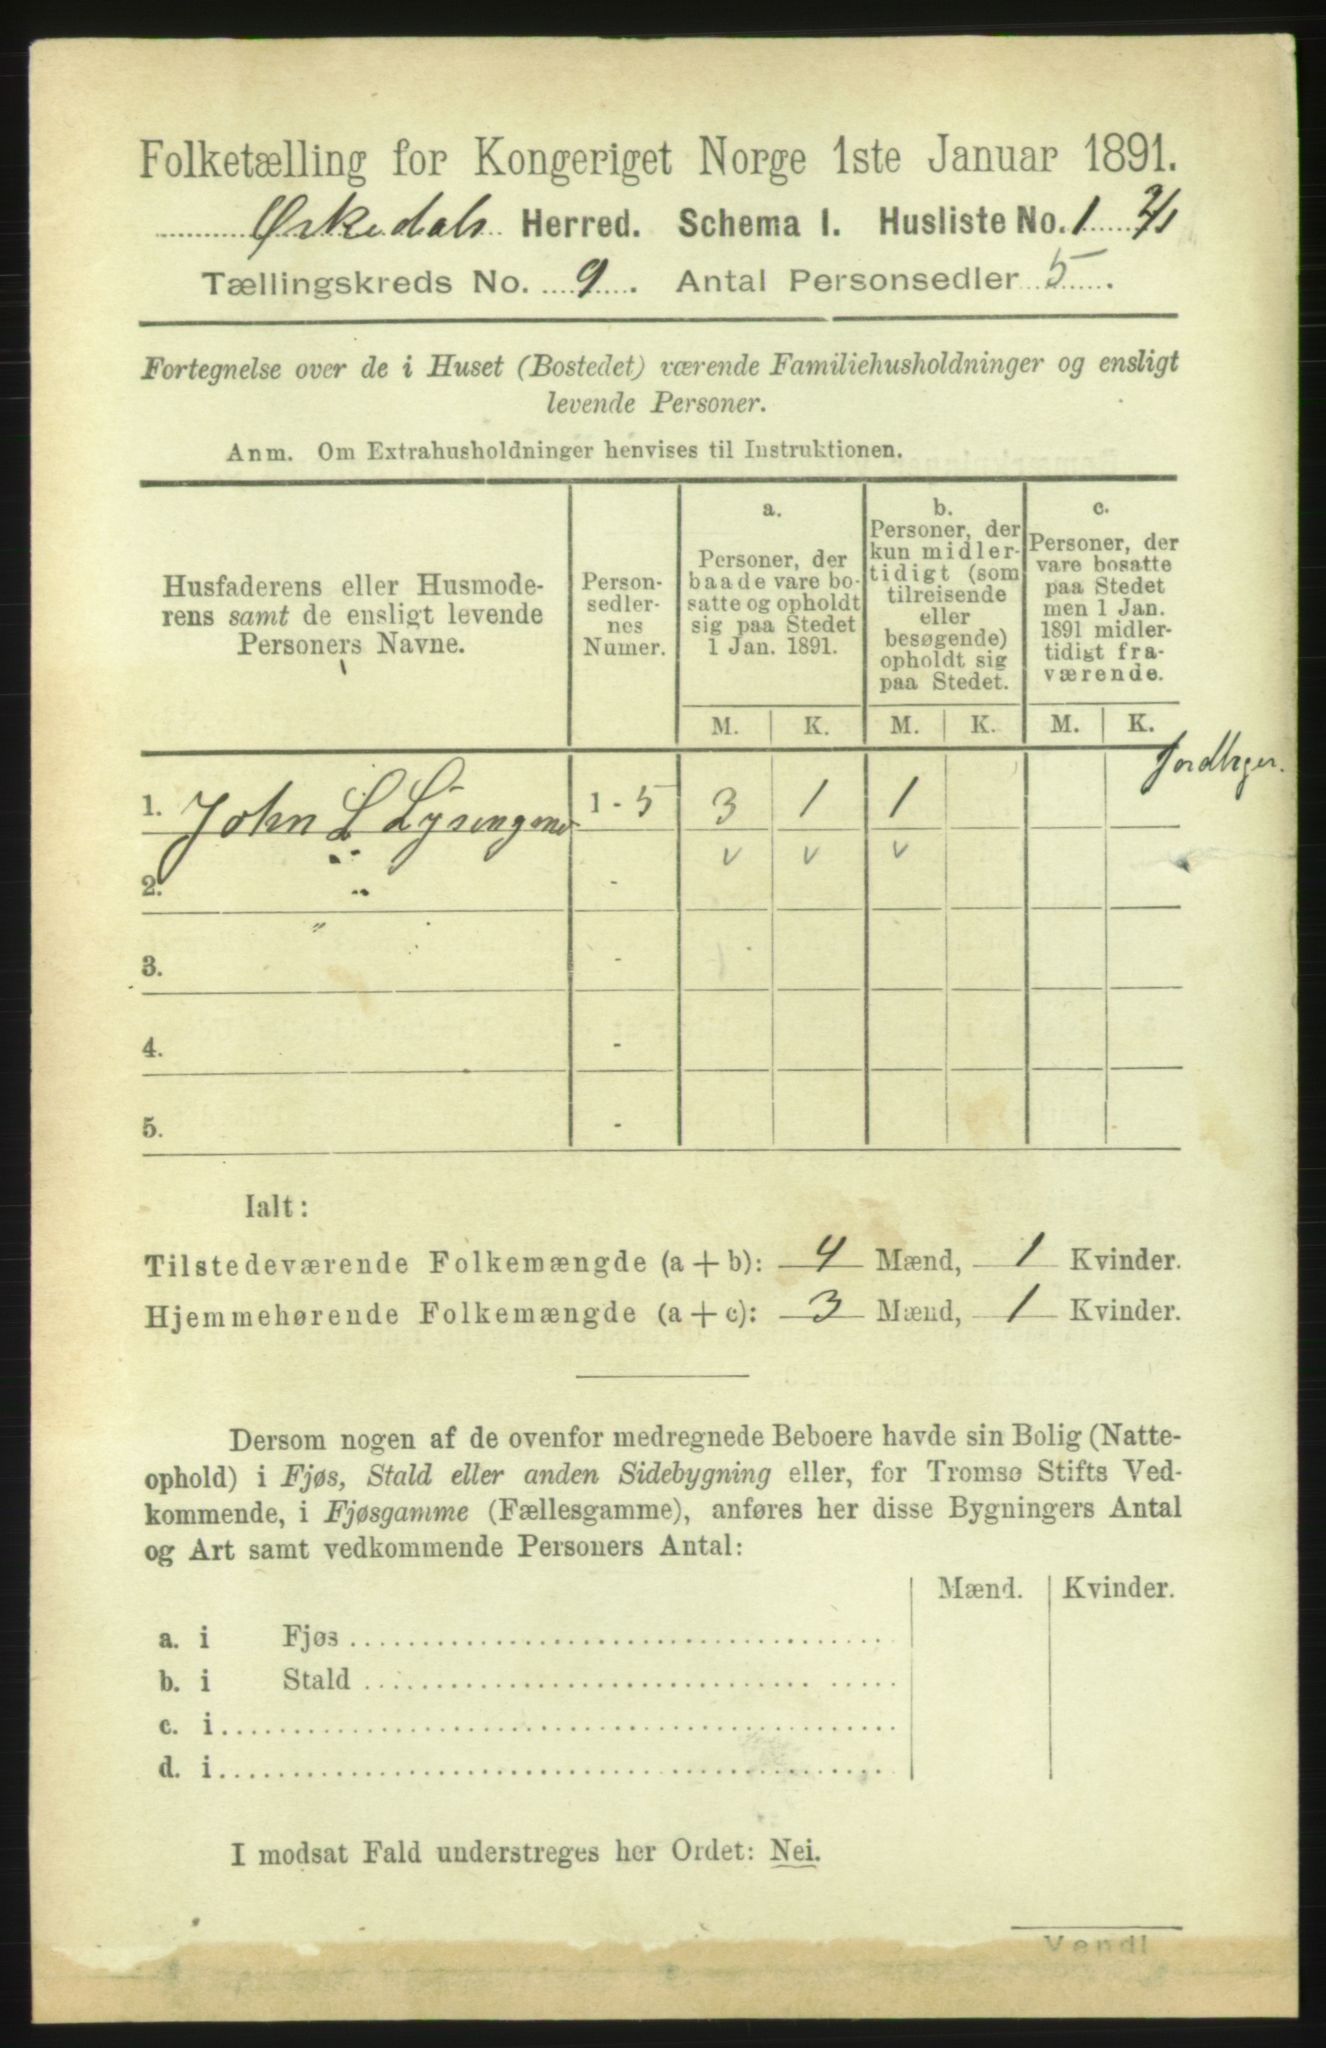 Folketælling for Kongeriget Norge 1ste Januar 1891.
Ørkedals Herred. Schema I. Husliste No. 1 2/1
Tællingskreds No. 9. Antal Personsedler 5.
Fortegnelse over de i Huset (Bostedet) værende Familiehusholdninger og ensligt
levende Personer.
Anm. Om Extrahusholdninger henvises til Instruktionen.
Husfaderens eller Husmode-
rens samt de ensligt levende
Personers Navne.
Person-
sedler-
nes
Numer.
a.
Personer, der
baade vare bo-
satte og opholdt
sig paa Stedet
1 Jan. 1891.
b.
Personer, der
kun midler-
tidigt (som
tilreisende
eller
besøgende)
opholdt sig
paa Stedet.
c.
Personer, der
vare bosatte
paa Stedet
men 1 Jan.
1891 midler-
tidigt fra-
værende.
M. K. M. K. M. K.
Jordbger.
1. John L Lysengene 1 - 5 3 1 1
v v v
2. -
3. -
4. -
5. -
Ialt:
Tilstedeværende Folkemængde (a + b): 4 Mænd, 1 Kvinder.
Hjemmehørende Folkemængde (a + c): 3 Mænd, 1 Kvinder.
Dersom nogen af de ovenfor medregnede Beboere havde sin Bolig (Natte-
ophold) i Fjøs, Stald eller anden Sidebygning eller, for Tromsø Stifts Ved-
kommende, i Fjøsgamme (Fællesgamme), anføres her disse Bygningers Antal
og Art samt vedkommende Personers Antal:
Mænd. Kvinder.
a. i Fjøs
b. i Stald
c. i
d. i
I modsat Fald understreges her Ordet: Nei.
Vendl